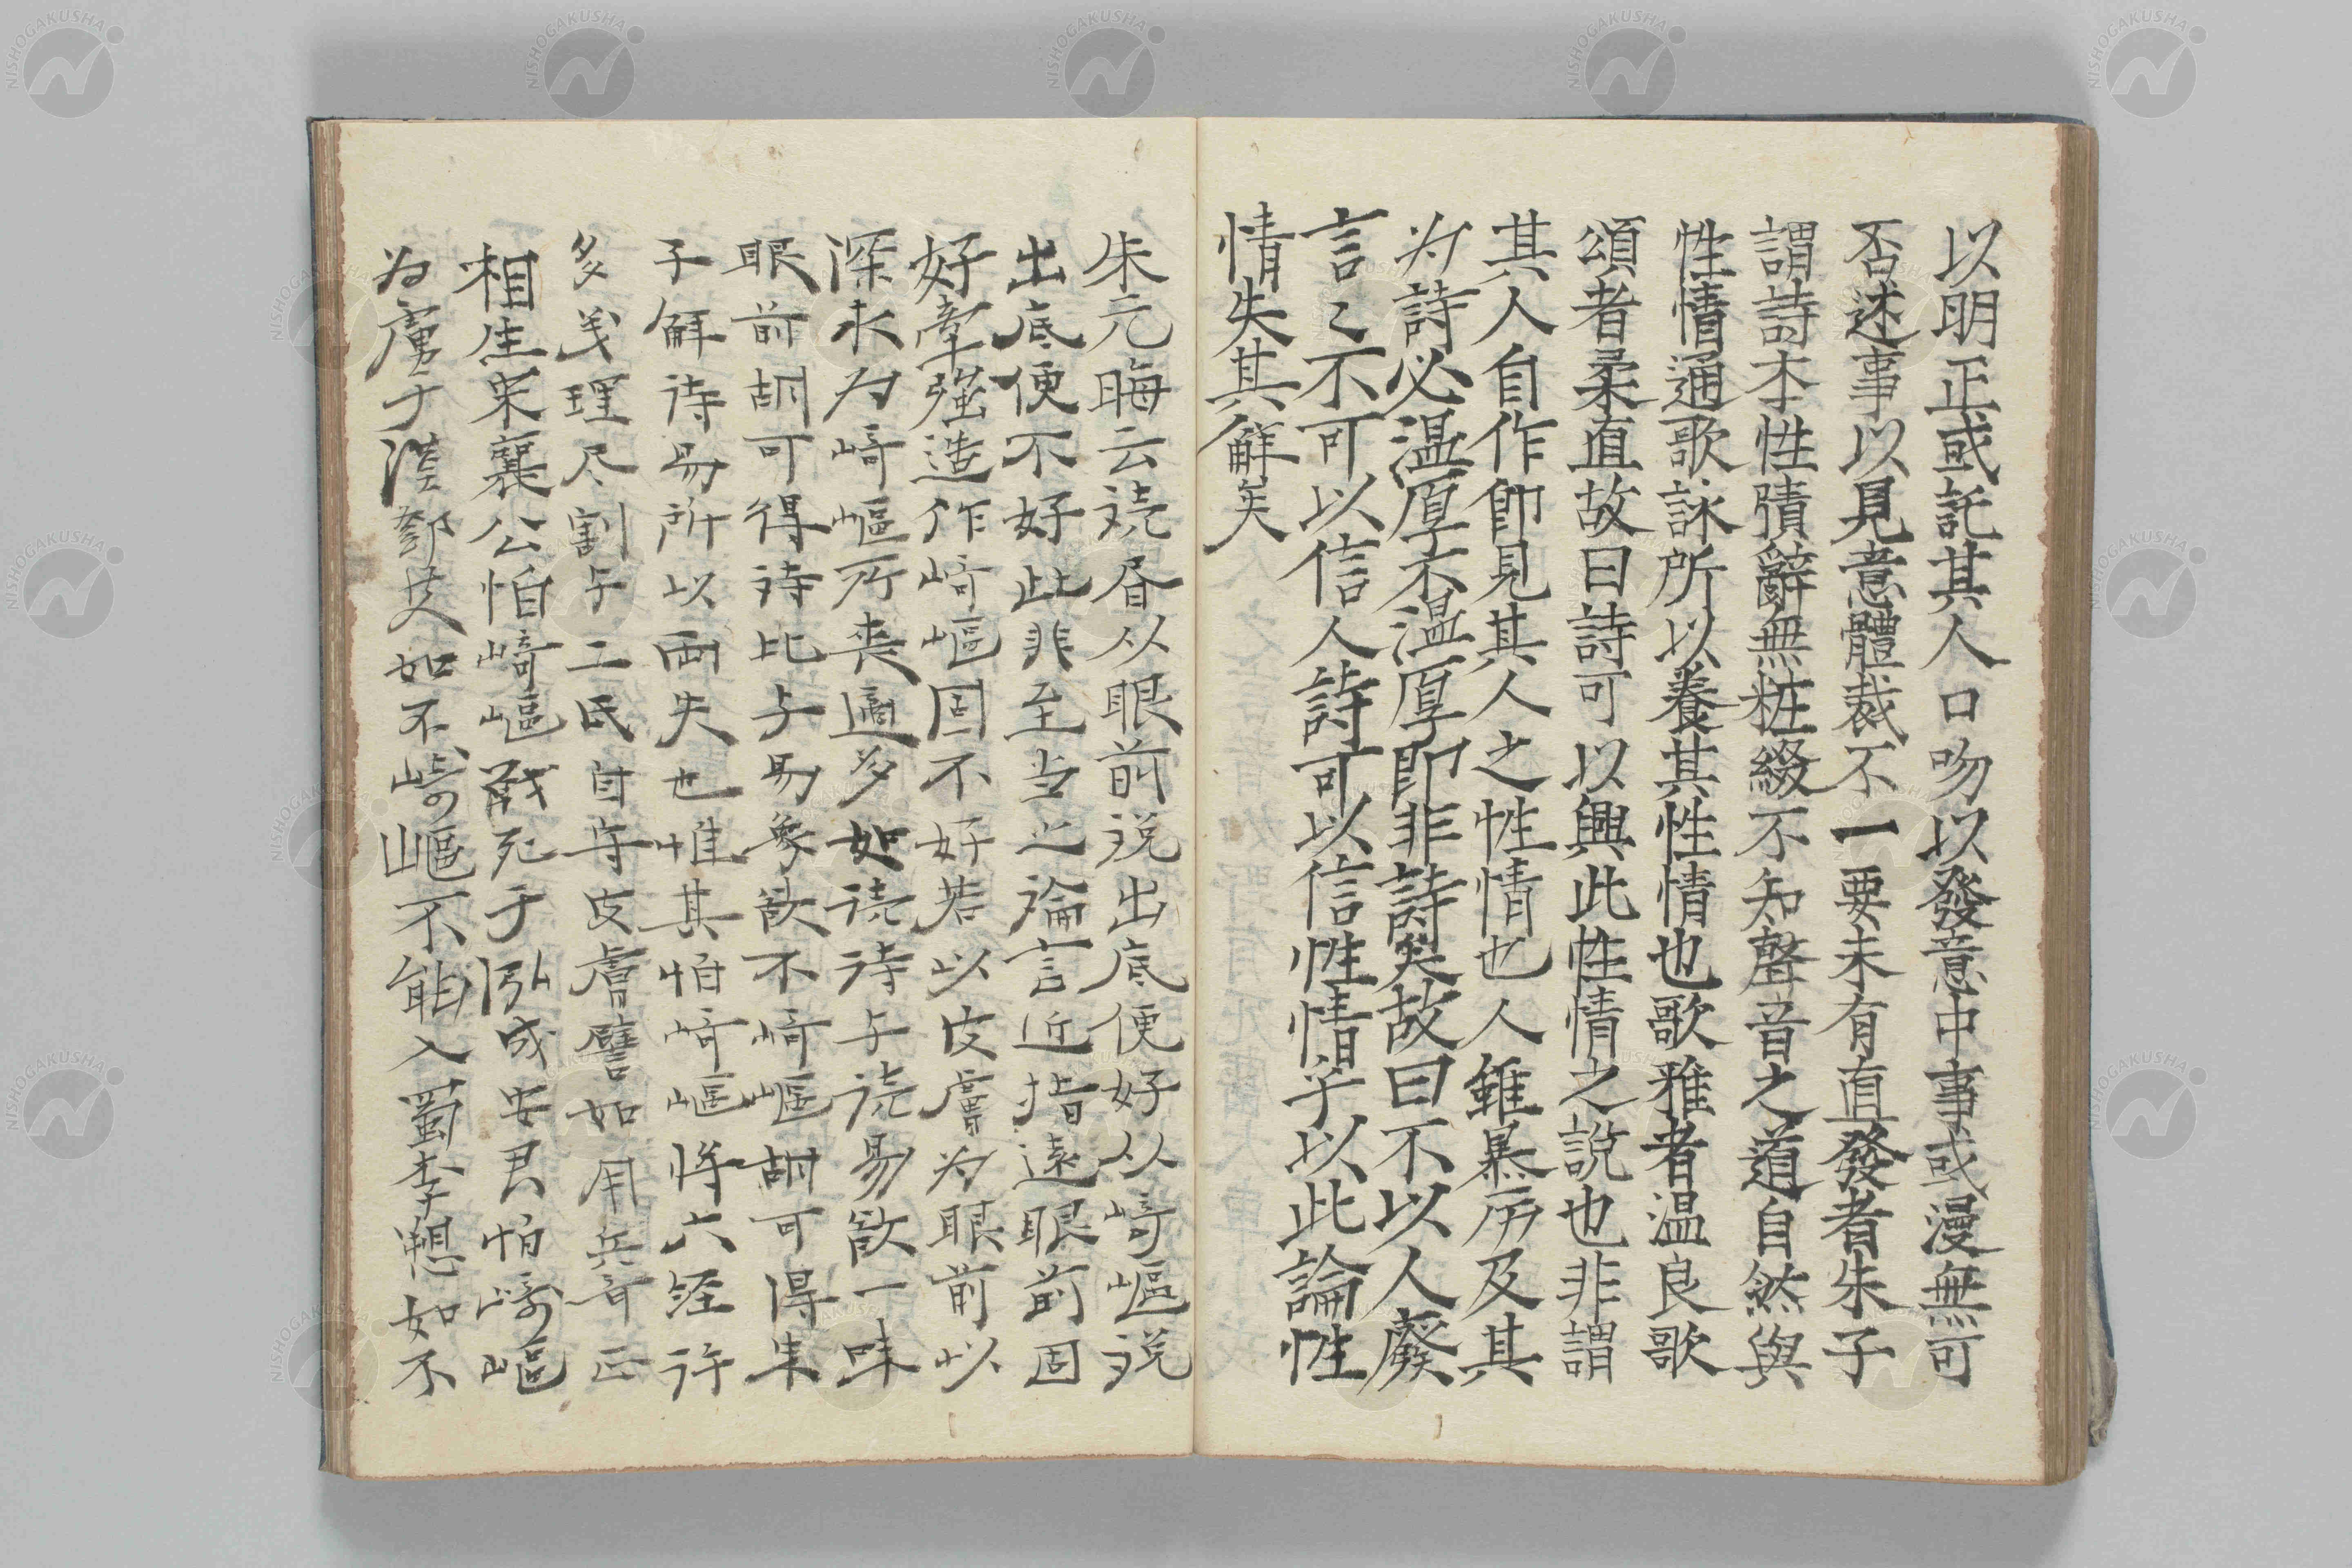 以明正或託其人口吻以發意中事或漫無可
否述事以見意體裁不一要未有直發者朱子
謂詩本性情辭無粧綴不知聲音之道自然與
性情通歌詠所以養其性情也歌雅者温良歌
頌者柔直故曰詩可以興此性情之說也非謂
其人自作卽見其人之性情也人雖暴厉及其
为詩必温厚不温厚卽非詩矣故曰不以人廢
言〻不可以信人詩可以信性情乎以此論性
情失其解矣
朱元晦云读昏从眼前说出底便好从崎嶇说
出底便不好此非至当之論言近指遠眼前固
好牽強造作崎嶇固不好若以皮膚为眼前以
深求为崎嶇所喪適多如读诗与读易欲一味
眼前胡可得诗比与易象欲不崎嶇胡可得朱
子解诗易所以両失也惟其怕崎嶇将六经许
多义理尽割与二氏自守皮膚譬如用兵奇正
相生宋襄公怕崎嶇戰死于泓成安君怕崎嶇
为虜于漢鄧艾如不崎嶇不能入蜀李愬如不